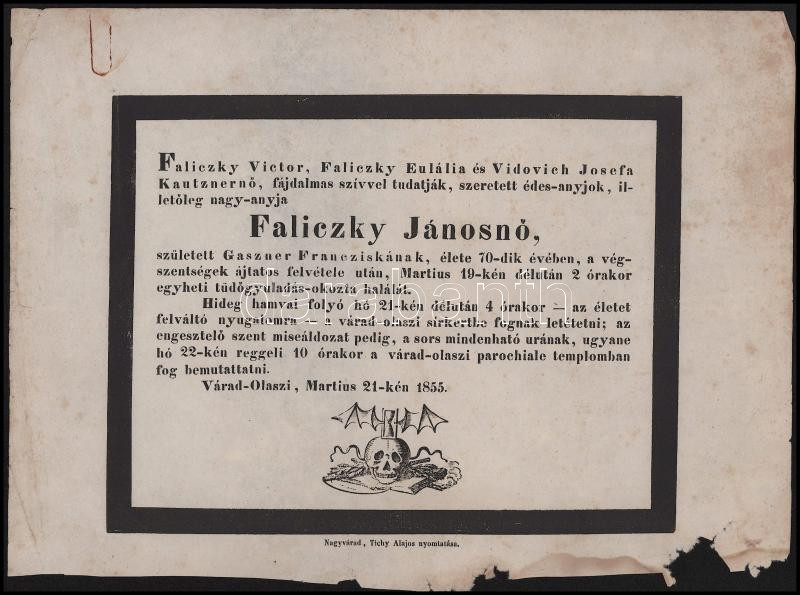 Faliczky Victor, Faliczky Eulália és Vidovich Josefa
Kautznernő, fájdalmas szívvel tudatják, szeretett édes-anyjok, il-
letőleg nagy-anyja
Faliczky Jánosnő,
született Gaszner Francziskának, élete 70-dik évében, a vég-
szentségek ájtatos felvétele után, Martius 19-kén délután 2 órakor
egyheti tüdőgyuladás-okozta halálát.
Hideg hamvai folyó hó 21-kén délután 4 órakor — az életet
felváltó nyugalomra — a várad-olaszi sírkertbe fognak letétetni; az
engesztelő szent miseáldozat pedig, a sors mindenható urának, ugyane
hó 22-kén reggeli 10 órakor a várad-olaszi parochiale templomban
fog bemutattatni.
Várad-Olaszi, Martius 21-kén 1855.
Nagyvárad, Tichy Alajos nyomtatása.
darabanth